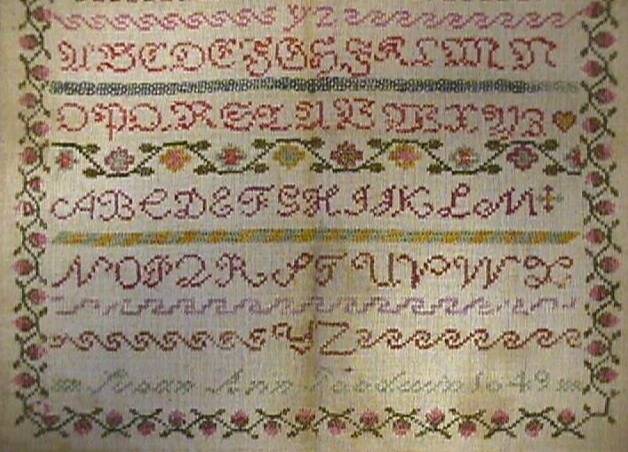 YZ
ABCDEFGHJKLMN
OPQRSTUVWXYZ
ABCDEFGHIJKLM
NOPQRSTUVWX
YZ
Susan Ann 1849